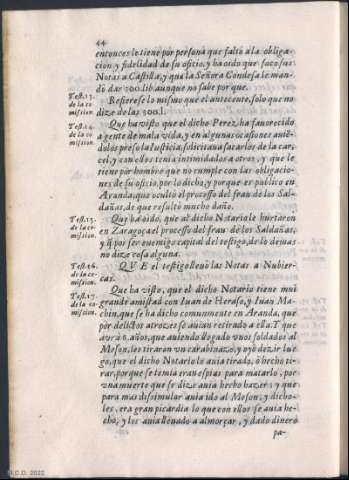 44
entonces le tiene por persona que faltó a la obliga-
cion y fidelidad de su oficio, y ha oido que sacó sus
Notas a Castilla, y que la Señora Condesa le man-
dò dar 200. lib. aunque no sabe por que.
Test.13. de la comission.
Refierese lo mismo que el antecente, solo que no
dize de las 200.l.
Test.14. de la comission.
Que ha visto que el dicho Perez, ha fauorecido
a gente de mala vida, y en algunas ocasiones auiē-
dolos preso la Iusticia, solicitaua sacarlos de la car-
cel, y con ellos tenia intimidados a otros, y que le
tiene por hombre que no cumple con las obligacio-
nes de su oficio, por lo dicho, y porque es publico en
Aranda, que ocultò el processo del frau de los Sal-
dañas, de que resultò mucho daño.
Test.15. de la comission.
Que ha oido, que al dicho Notario le hurtaron
en Zaragoça el processo del frau de los Saldañas,
y q̃ por ser enemigo capital del testigo, de lo demas
no dize cosa alguna.
Test.16. de la comission.
QVE el testigo lleuò las Notas a Nubier-
ca.
Test.17. de la comission.
Que ha visto, que el dicho Notario tiene mui
grande amistad con Iuan de Heraso, y Iuan Ma-
chin, que se ha dicho comunmente en Aranda, que
por delictos atrozes se auian retirado a ella. Y que
aurà 6. años, que auiendo llegado vnos soldados al
Meson, les tiraron vn carabinazo, y oyò dezir lue
go, que el dicho Notario le auia tirado, ò hecho ti-
rar, porque se temia eran espias para matarlo, por
vna muerte que se dize auia hecho hazer; y que
para mas dissimular auia ido al Meson, y dicho-
les, era gran picardia lo que con ellos se auia he-
cho, y les auia lleuado a almorçar, y dado dinero
pa-
D. 2022